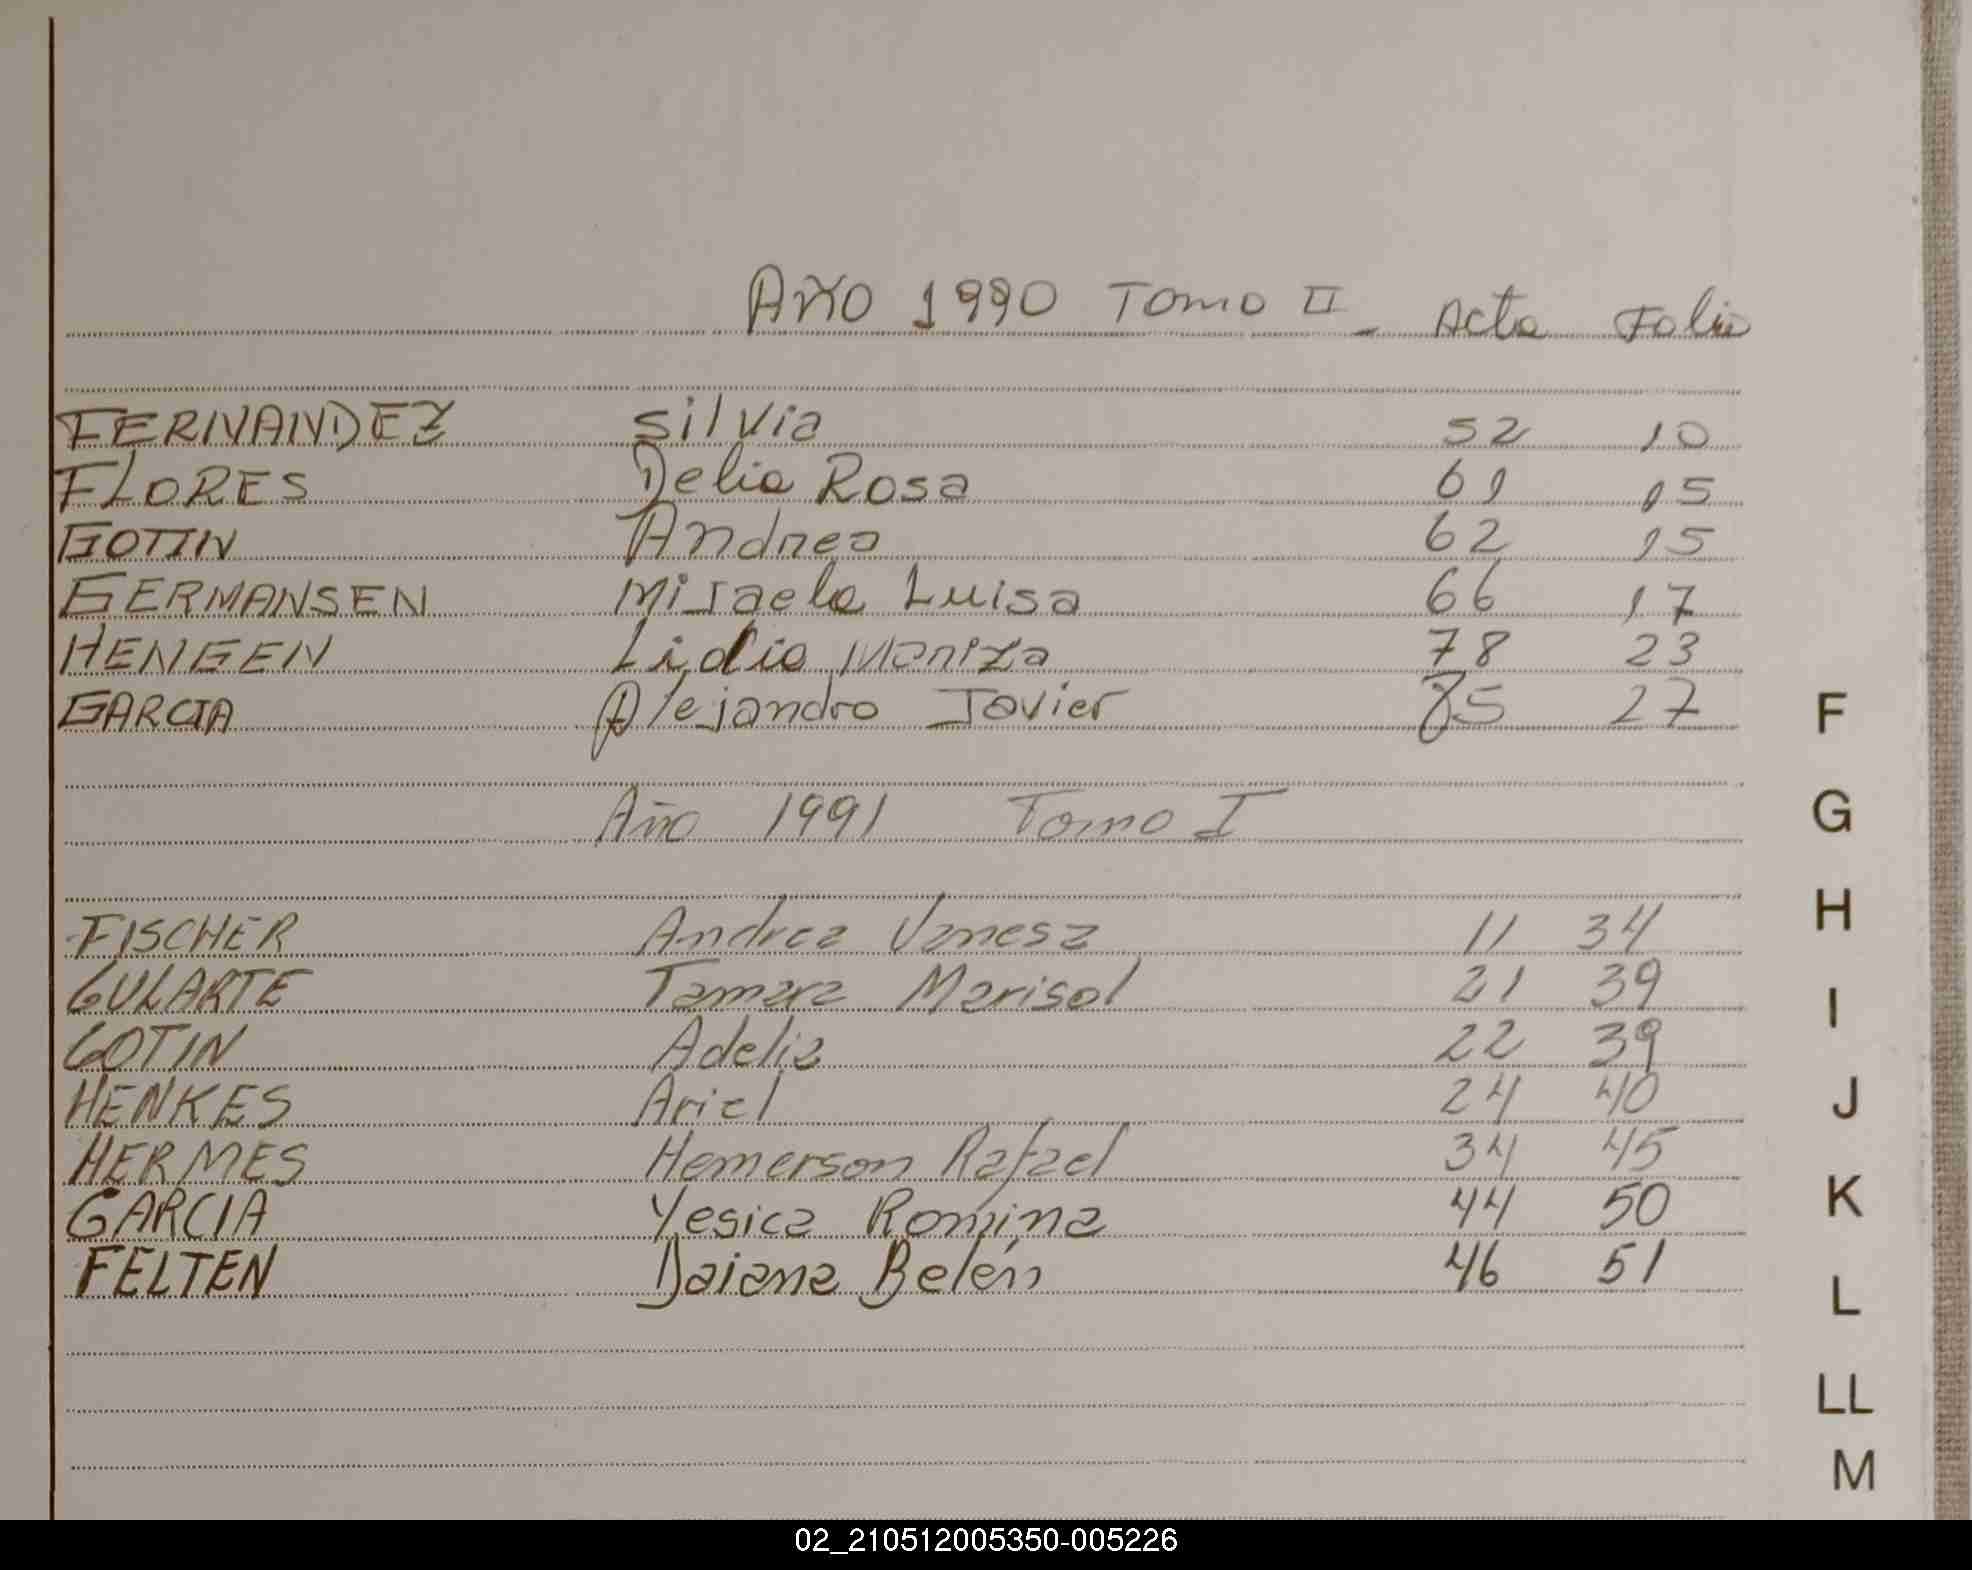 Año 1990 Tomo II - Acta Folio
FERNANDEZ Silvia 52 10
FLORES Delia Rosa 61 15
GOTTIN Andrea 62 15
GERMANSEN Misaela Luisa 66 17
HENGEN Lidia Mariza 78 23
GARCIA Alejandro Javier 85 27
Año 1991 Tomo I
FISCHER Andrea Vanesa 11 34
GULARTE Tamara Marisol 21 39
GOTIN Adelia 22 39
HENKES Ariel 24 40
HERMES Hemerson Rafael 34 45
GARCIA Yesica Romina 44 50
FELTEN Daiana Belén 46 51
F
G
H
I
J
K
L
LL
M
02_210512005350-005226